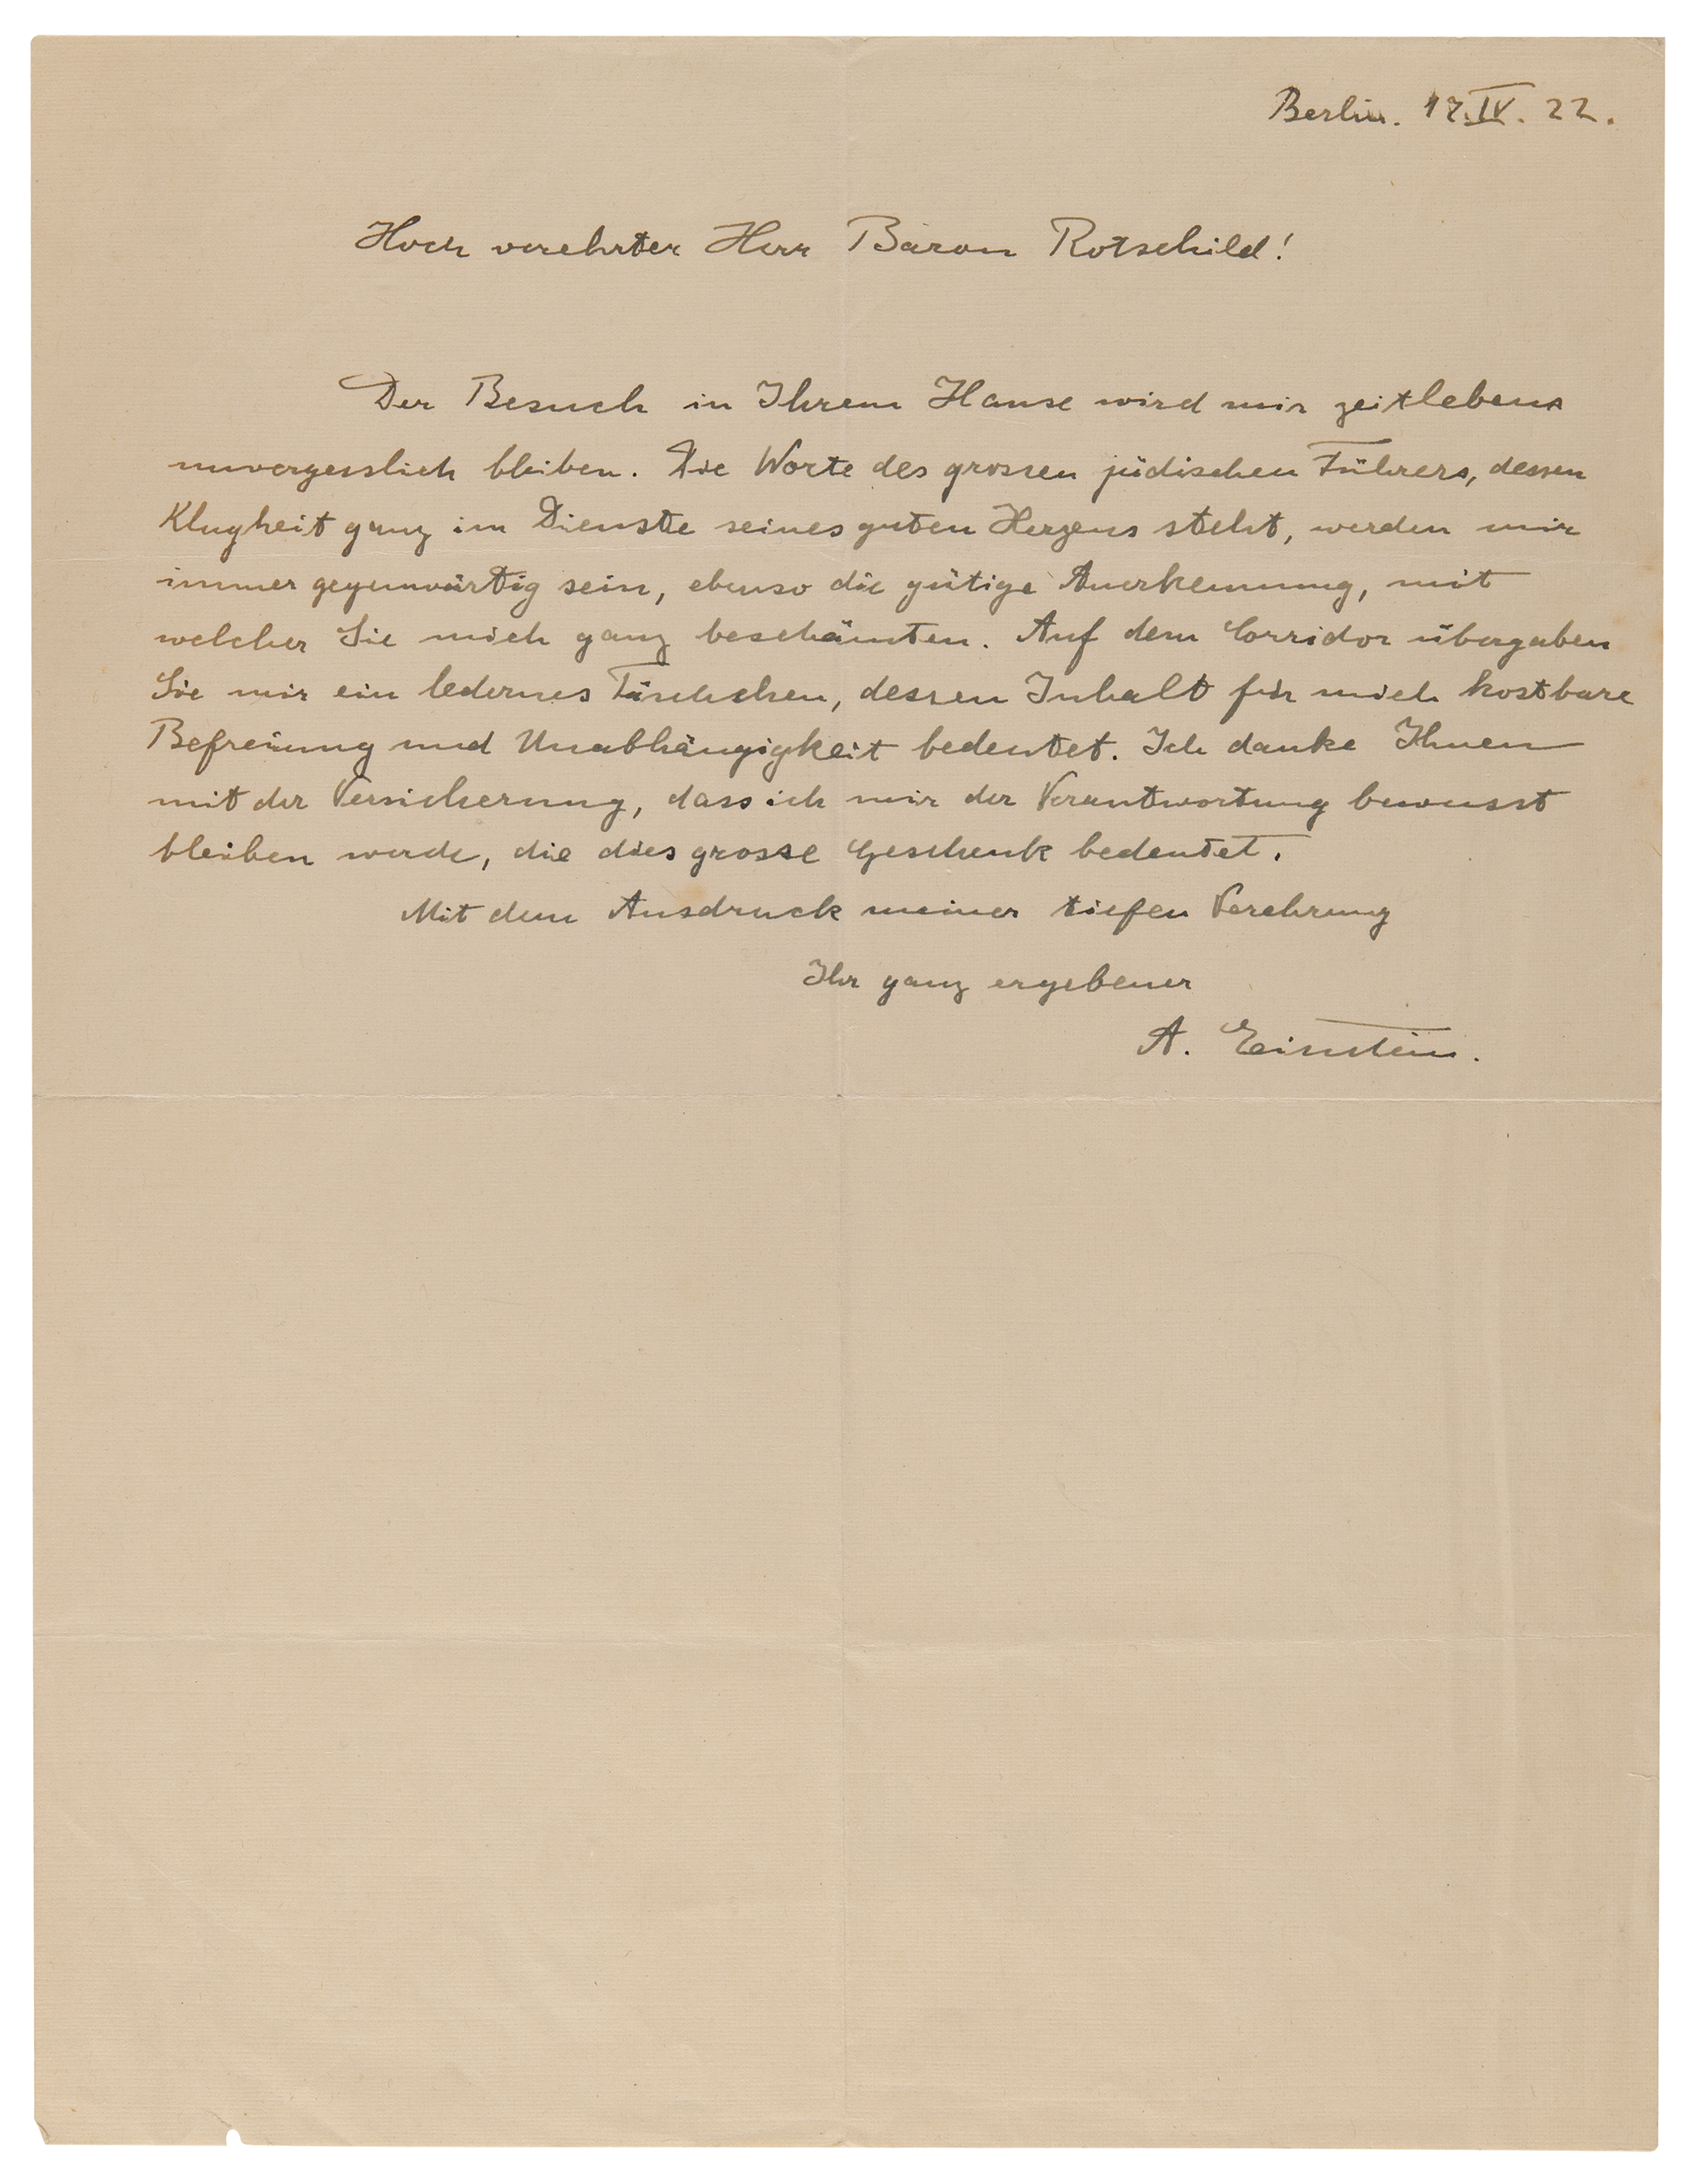 Berlin. 17.IV. 22.
Hoch verehrter Herr Baron Rotschild!
Der Besuch in Ihrem Hause wird mir zeitlebens
unvergesslich bleiben. Die Worte des grossen jüdischen Führers, dessen
Klugheit ganz im Dienste seines guten Herzens steht, werden mir
immer gegenwärtig sein, ebenso die gütige Anerkennung, mit
welcher Sie mich ganz beschämten. Auf dem Corridor übergaben
Sie mir ein ledernes Täschchen, dessen Inhalt für mich kostbare
Befreiung und Unabhängigkeit bedeutet. Ich danke Ihnen
mit der Versicherung, dass ich mir der Verantwortung bewusst
bleiben werde, die dies grosse Geschenk bedeutet.
Mit dem Ausdruck meiner tiefen Verehrung
Ihr ganz ergebener
A. Einstein.